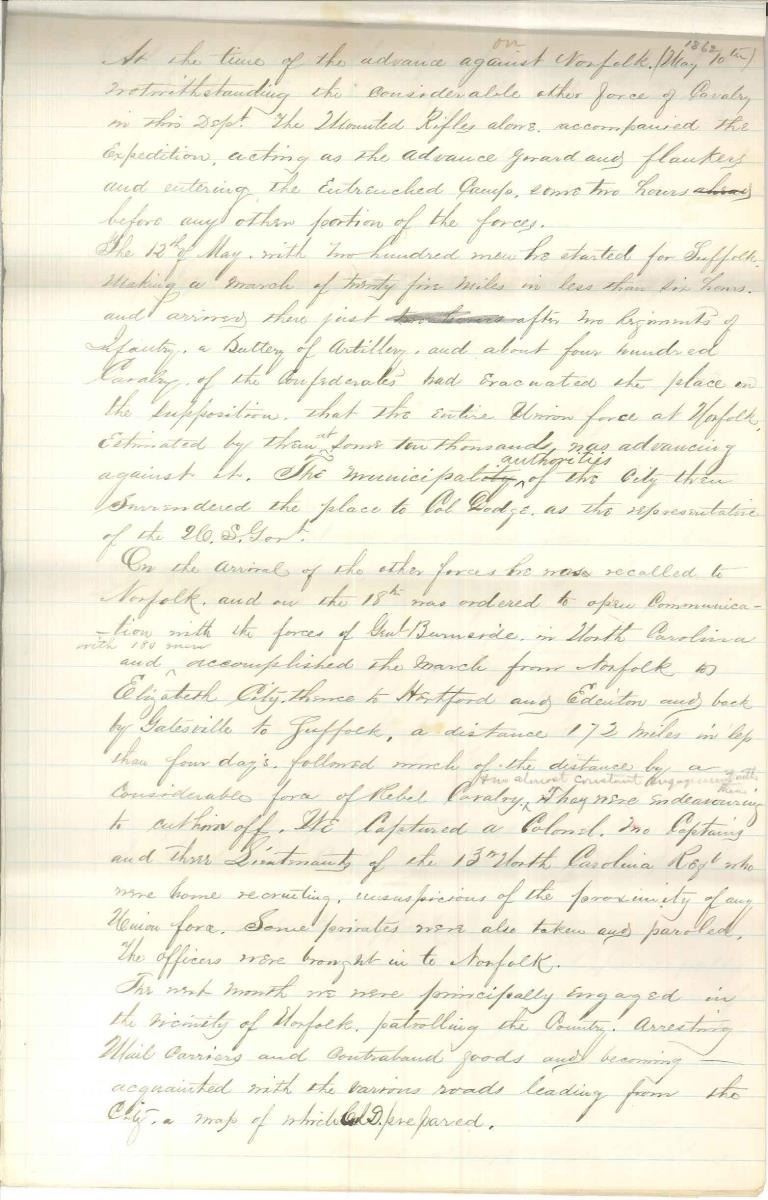 At the time of the advance against on Norfolk, (May 10th) 1862
notwithstanding the considerable other force of Cavalry
in this Dept. The Mounted Rifles alone, accompanied the
Expedition, acting as the advance guard and flankers
and entering the Entrenched Camp, some two hours ahead
before any other portion of the forces.
The 12th of May, with two hundred men he started for Suffolk.
Making a march of twenty five miles in less than six hours.
and arrived there just two hours after two Regiments of
Infantry, a Battery of Artillery, and about four hundred
Cavalry, of the Confederates had evacuated the place on
the supposition, that the entire Union force at Norfolk,
Estimated by them at some ten thousand, was advancing
against it. The municipality authorities of the City then
surrendered the place to Col Dodge, as the representative
of the U. S. Govt.
On the arrival of the other forces he was recalled to
Norfolk, and on the 18th was ordered to open Communica-
-tion with the forces of Genl Burnside, in North Carolina
with 180 men
and accomplished the march from Norfolk to
Elizabeth City, thence to Hertford and Edenton and back
by Gatesville to Suffolk, a distance 172 miles in less
than four days. followed much of the distance by a
two almost constant engagement with them
considerable force of Rebel Cavalry, They were endeavouring
to cut him off. We Captured a Colonel, two Captains
and three Lieutenants of the 13th North Carolina Regt who
were home recruiting, unsuspicious of the proximity of any
Union force. Some privates were also taken and paroled,
The officers were brought in to Norfolk.
The next month we were principally engaged in
the vicinity of Norfolk, patrolling the Country, Arresting
Mail Carriers and Contraband goods and becoming —
acquainted with the various roads leading from the
City, a map of which Col D. prepared.